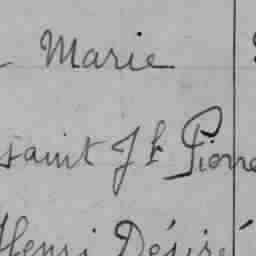 Marie
saint Jh Pierre
Henri Désiré